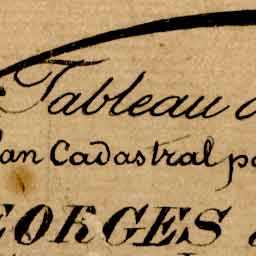 Tableau d
lan Cadastral pa
EORGES